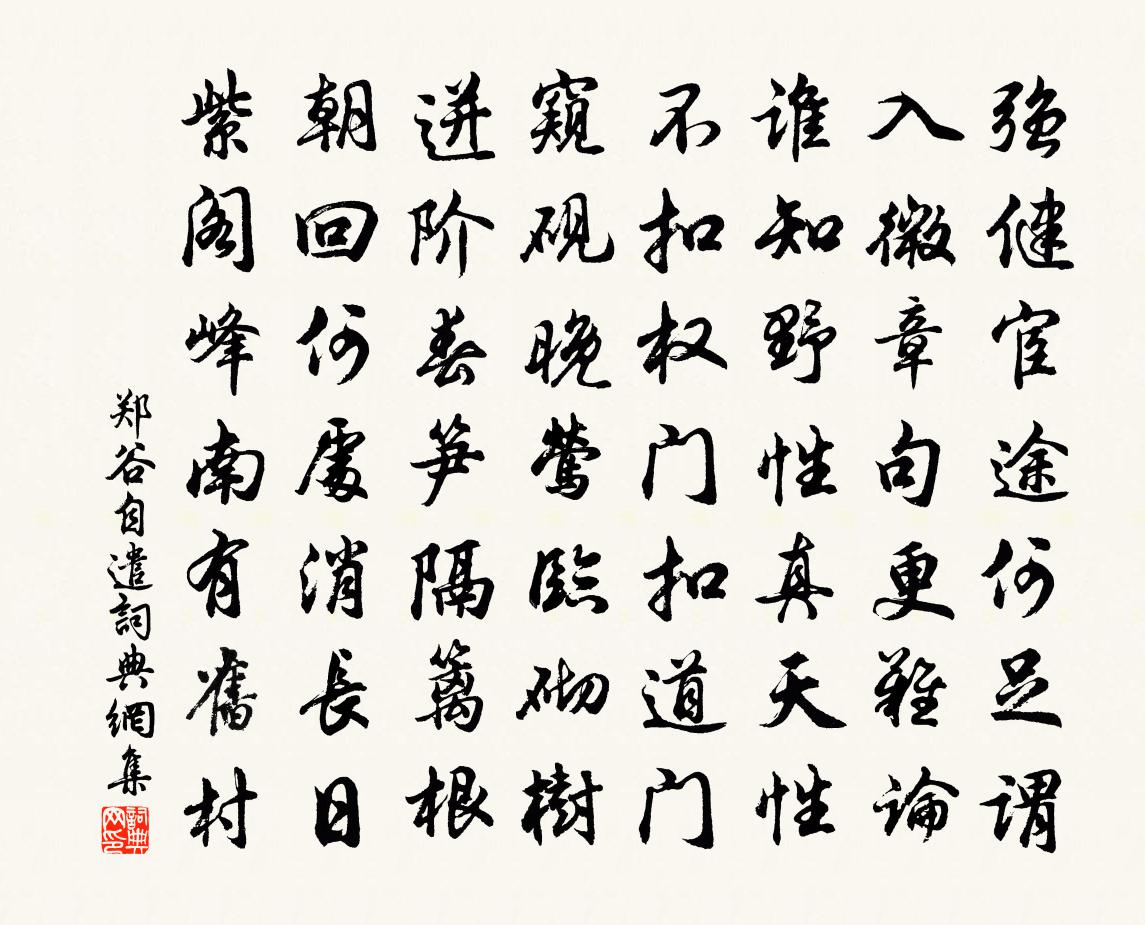 强健宦途何足谓
入微章句更難論
谁知野性真天性
不扣权门扣道门
窺砚晚鶯臨砌樹
迸阶春笋隔篱根
朝回何處消長日
紫阁峰南有舊村
郑谷自遣詞典網集
詞典网印